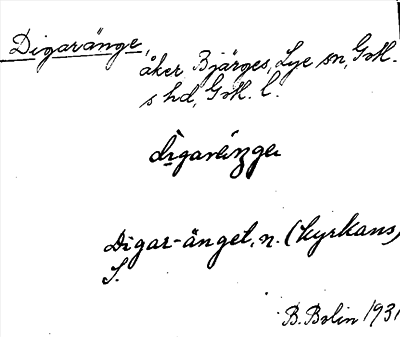 Digaränge,
åker Bjärges, Lye sn, Gotl.
s hd, Gotl. l.
digaränge
Digar-änget, n. (kyrkans)
S.
B. Bolin 1931